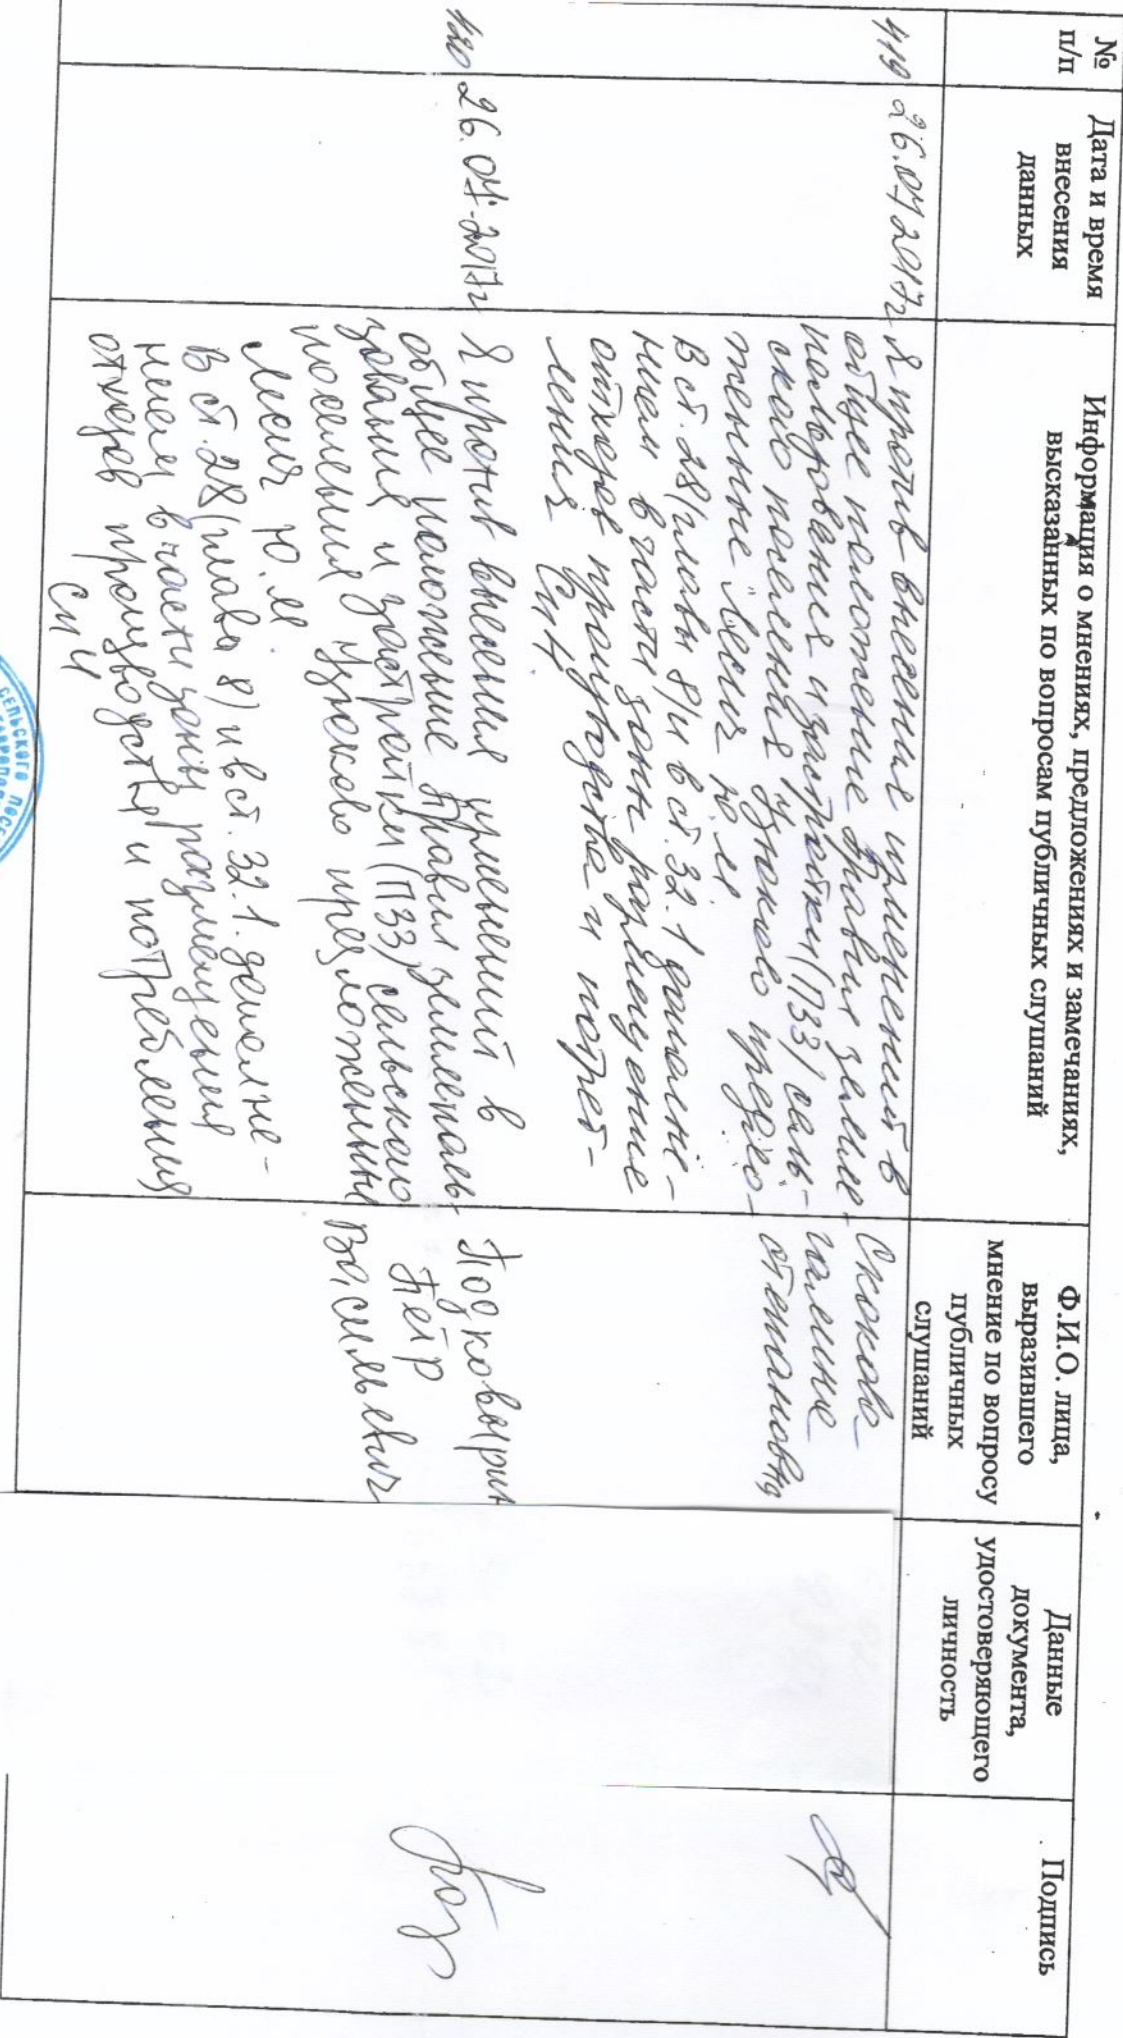 №
п/п
Дата и время
внесения
данных
Информация о мнениях, предложениях и замечаниях,
высказанных по вопросам публичных слушаний
Ф.И.О. лица,
выразившего
мнение по вопросу
публичных
слушаний
Данные
документа,
удостоверяющего
личность
Подпись
419
26.07 2017г
Я против внесения изменений в
общее положение Правил земле-
пользования и застройки (ПЗЗ) сель-
ского поселения Узюково предло-
женные Лесик Ю.М
В ст. 28 (главы 8) и в ст. 32.1 дополне-
нием в части зоны размещение
отходов производства и потреб-
ления СпН.
Скокова
Галина
Степановна
420
26.07.2017г
Я против внесения изменений в
общее положение Правил землеполь-
зования и застройки (ПЗЗ) сельского
поселения Узюково предложенных
Лесик Ю.М
В ст. 28 (глава 8) и в ст. 32.1. дополне-
нием в части зоны размещения
отходов производства и потребления
Сп4
Подковырин
Пётр
Васильевич
СЕЛЬСКОГО